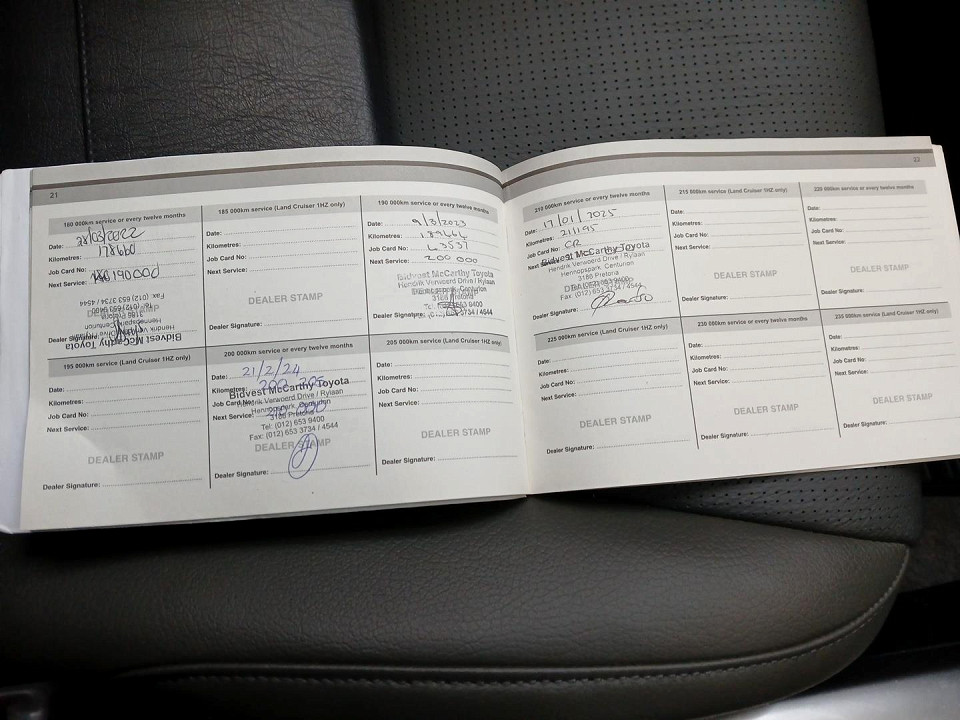 21
180 000km service or every twelve months
Date: 28/03/2022
Kilometres: 178660
Job Card No:
Next Service: 190000
Bidvest McCarthy Toyota
Hendrik Verwoerd Drive / Rylaan
Hennopspark, Centurion
3186 Pretoria
Tel: (012) 653 9400
Fax (012) 653 3734 / 4544
Dealer Signature:
185 000km service (Land Cruiser 1HZ only)
Date:
Kilometres:
Job Card No:
Next Service:
DEALER STAMP
Dealer Signature:
190 000km service or every twelve months
Date: 9/3/2023
Kilometres: 189664
Job Card No: 63537
Next Service: 200 000
Bidvest McCarthy Toyota
Hendrik Verwoerd Drive / Rylaan
Hennopspark, Centurion
3186 Pretoria
653 9400
653 3734 / 4544
Dealer Signature:
195 000km service (Land Cruiser 1HZ only)
Date:
Kilometres:
Job Card No:
Next Service:
DEALER STAMP
Dealer Signature:
200 000km service or every twelve months
Date: 21/2/24
Kilometres:
Job Card No:
Next Service:
Bidvest McCarthy Toyota
Hendrik Verwoerd Drive / Rylaan
Hennopspark, Centurion
3186 Pretoria
Tel: (012) 653 9400
Fax: (012) 653 3734 / 4544
DEALER STAMP
Dealer Signature:
205 000km service (Land Cruiser 1HZ only)
Date:
Kilometres:
Job Card No:
Next Service:
DEALER STAMP
Dealer Signature:
22
210 000km service or every twelve months
Date: 17/01/2025
Kilometres: 211195
Job Card No: CR
Next
Bidvest McCarthy Toyota
Hendrik Verwoerd Drive / Rylaan
Hennopspark, Centurion
3186 Pretoria
653 9400
Fax (012) 653 3734 / 4544
Dealer Signature:
215 000km service (Land Cruiser 1HZ only)
Date:
Kilometres:
Job Card No:
Next Service:
DEALER STAMP
Dealer Signature:
220 000km service or every twelve months
Date:
Kilometres:
Job Card No:
Next Service:
DEALER STAMP
Dealer Signature:
225 000km service (Land Cruiser 1HZ only)
Date:
Kilometres:
Job Card No:
Next Service:
DEALER STAMP
Dealer Signature:
230 000km service or every twelve months
Date:
Kilometres:
Job Card No:
Next Service:
DEALER STAMP
Dealer Signature:
235 000km service (Land Cruiser 1HZ only)
Date:
Kilometres:
Job Card No:
Next Service:
DEALER STAMP
Dealer Signature: